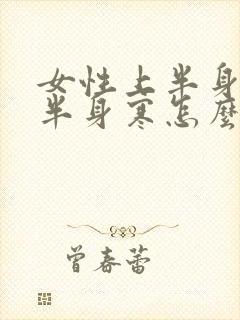 女性上半身
半身寒怎麼
曾春蕾